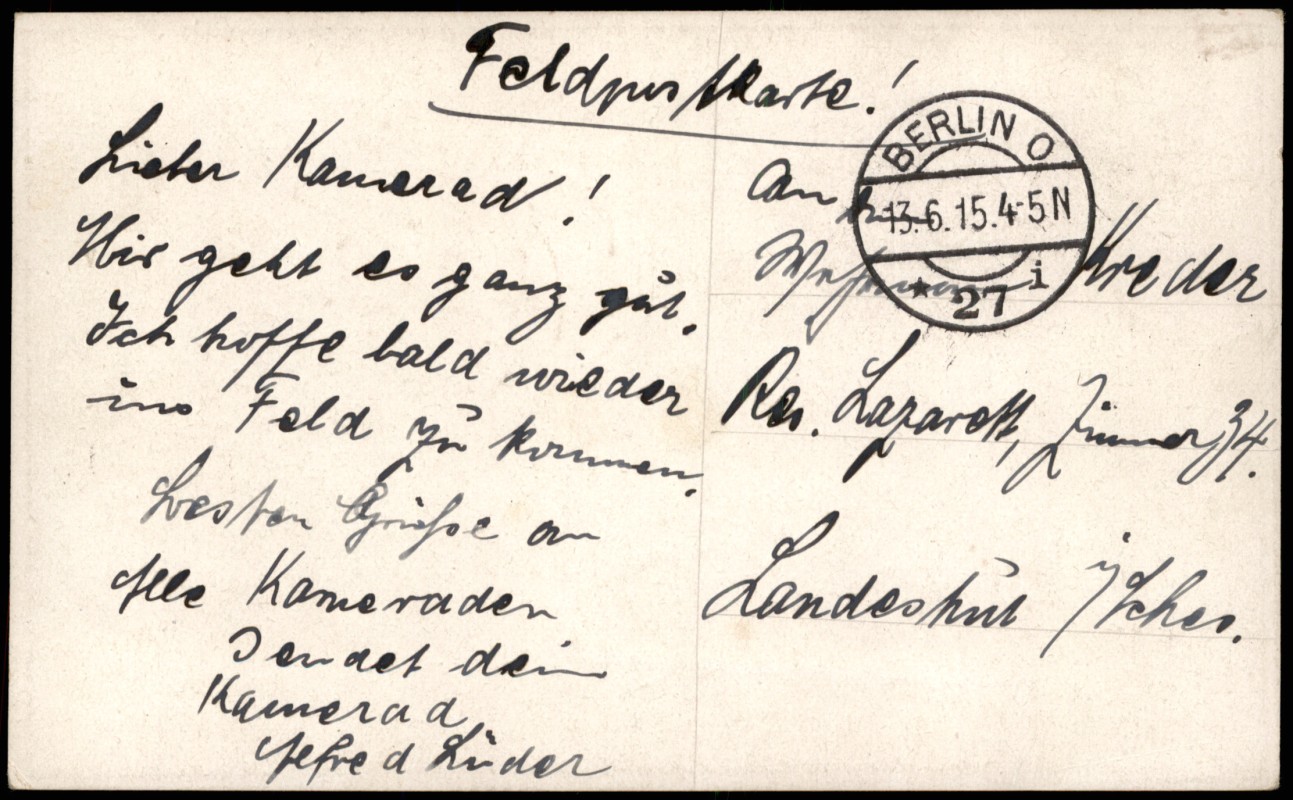 Feldpostkarte!
Lieber Kamerad!
Mir geht es ganz gut.
Ich hoffe bald wieder
ins Feld zu kommen.
besten Grüße an
Alle Kameraden
Sendet dein
Kamerad
Alfred Lüder
BERLIN O
13.6.15.4-5N
* 27 i
An den
Wehrmann Kreder
Res. Lazarett, Zimmer 34.
Landeshut i/Schles.